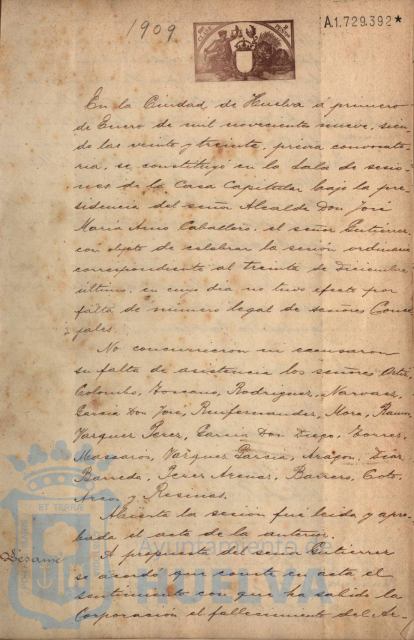 1909
A.1.729.392*
En la Ciudad de Huelva á primero
de Enero de mil novecientos nueve, sien
do las veinte y treinta, previa convocato
ria, se constituyó en la Sala de sesio
nes de la Casa Capitular bajo la pre
sidencia del señor Alcalde Don José
Maria Amo Caballero, el señor Gutierrez
con objeto de celebrar la sesión ordinaria
correspondiente al treinta de diciembre
último, en cuyo dia no tuvo efecto por
falta de número legal de señores Conce
jales.
No concurrieron ni excusaron
su falta de asistencia los señores Ortiz,
Colombo, Toscano, Rodriguez, Narvaez,
Garcia Don José, Mora,
Vazquez Perez, Garcia Don Diego, Torres,
Vazquez Garcia, Aragon, Diaz
Barreda, Barrero, Coto,
y Resinas.
Abierta la sesión fué leida y apro
bada el acta de la anterior.
Pésame
A propuesta del señor Gutierrez
se acordó que conste en acta el
sentimiento con que ha sabido la
Corporación el fallecimiento del
Ayuntamiento de
HUELVA